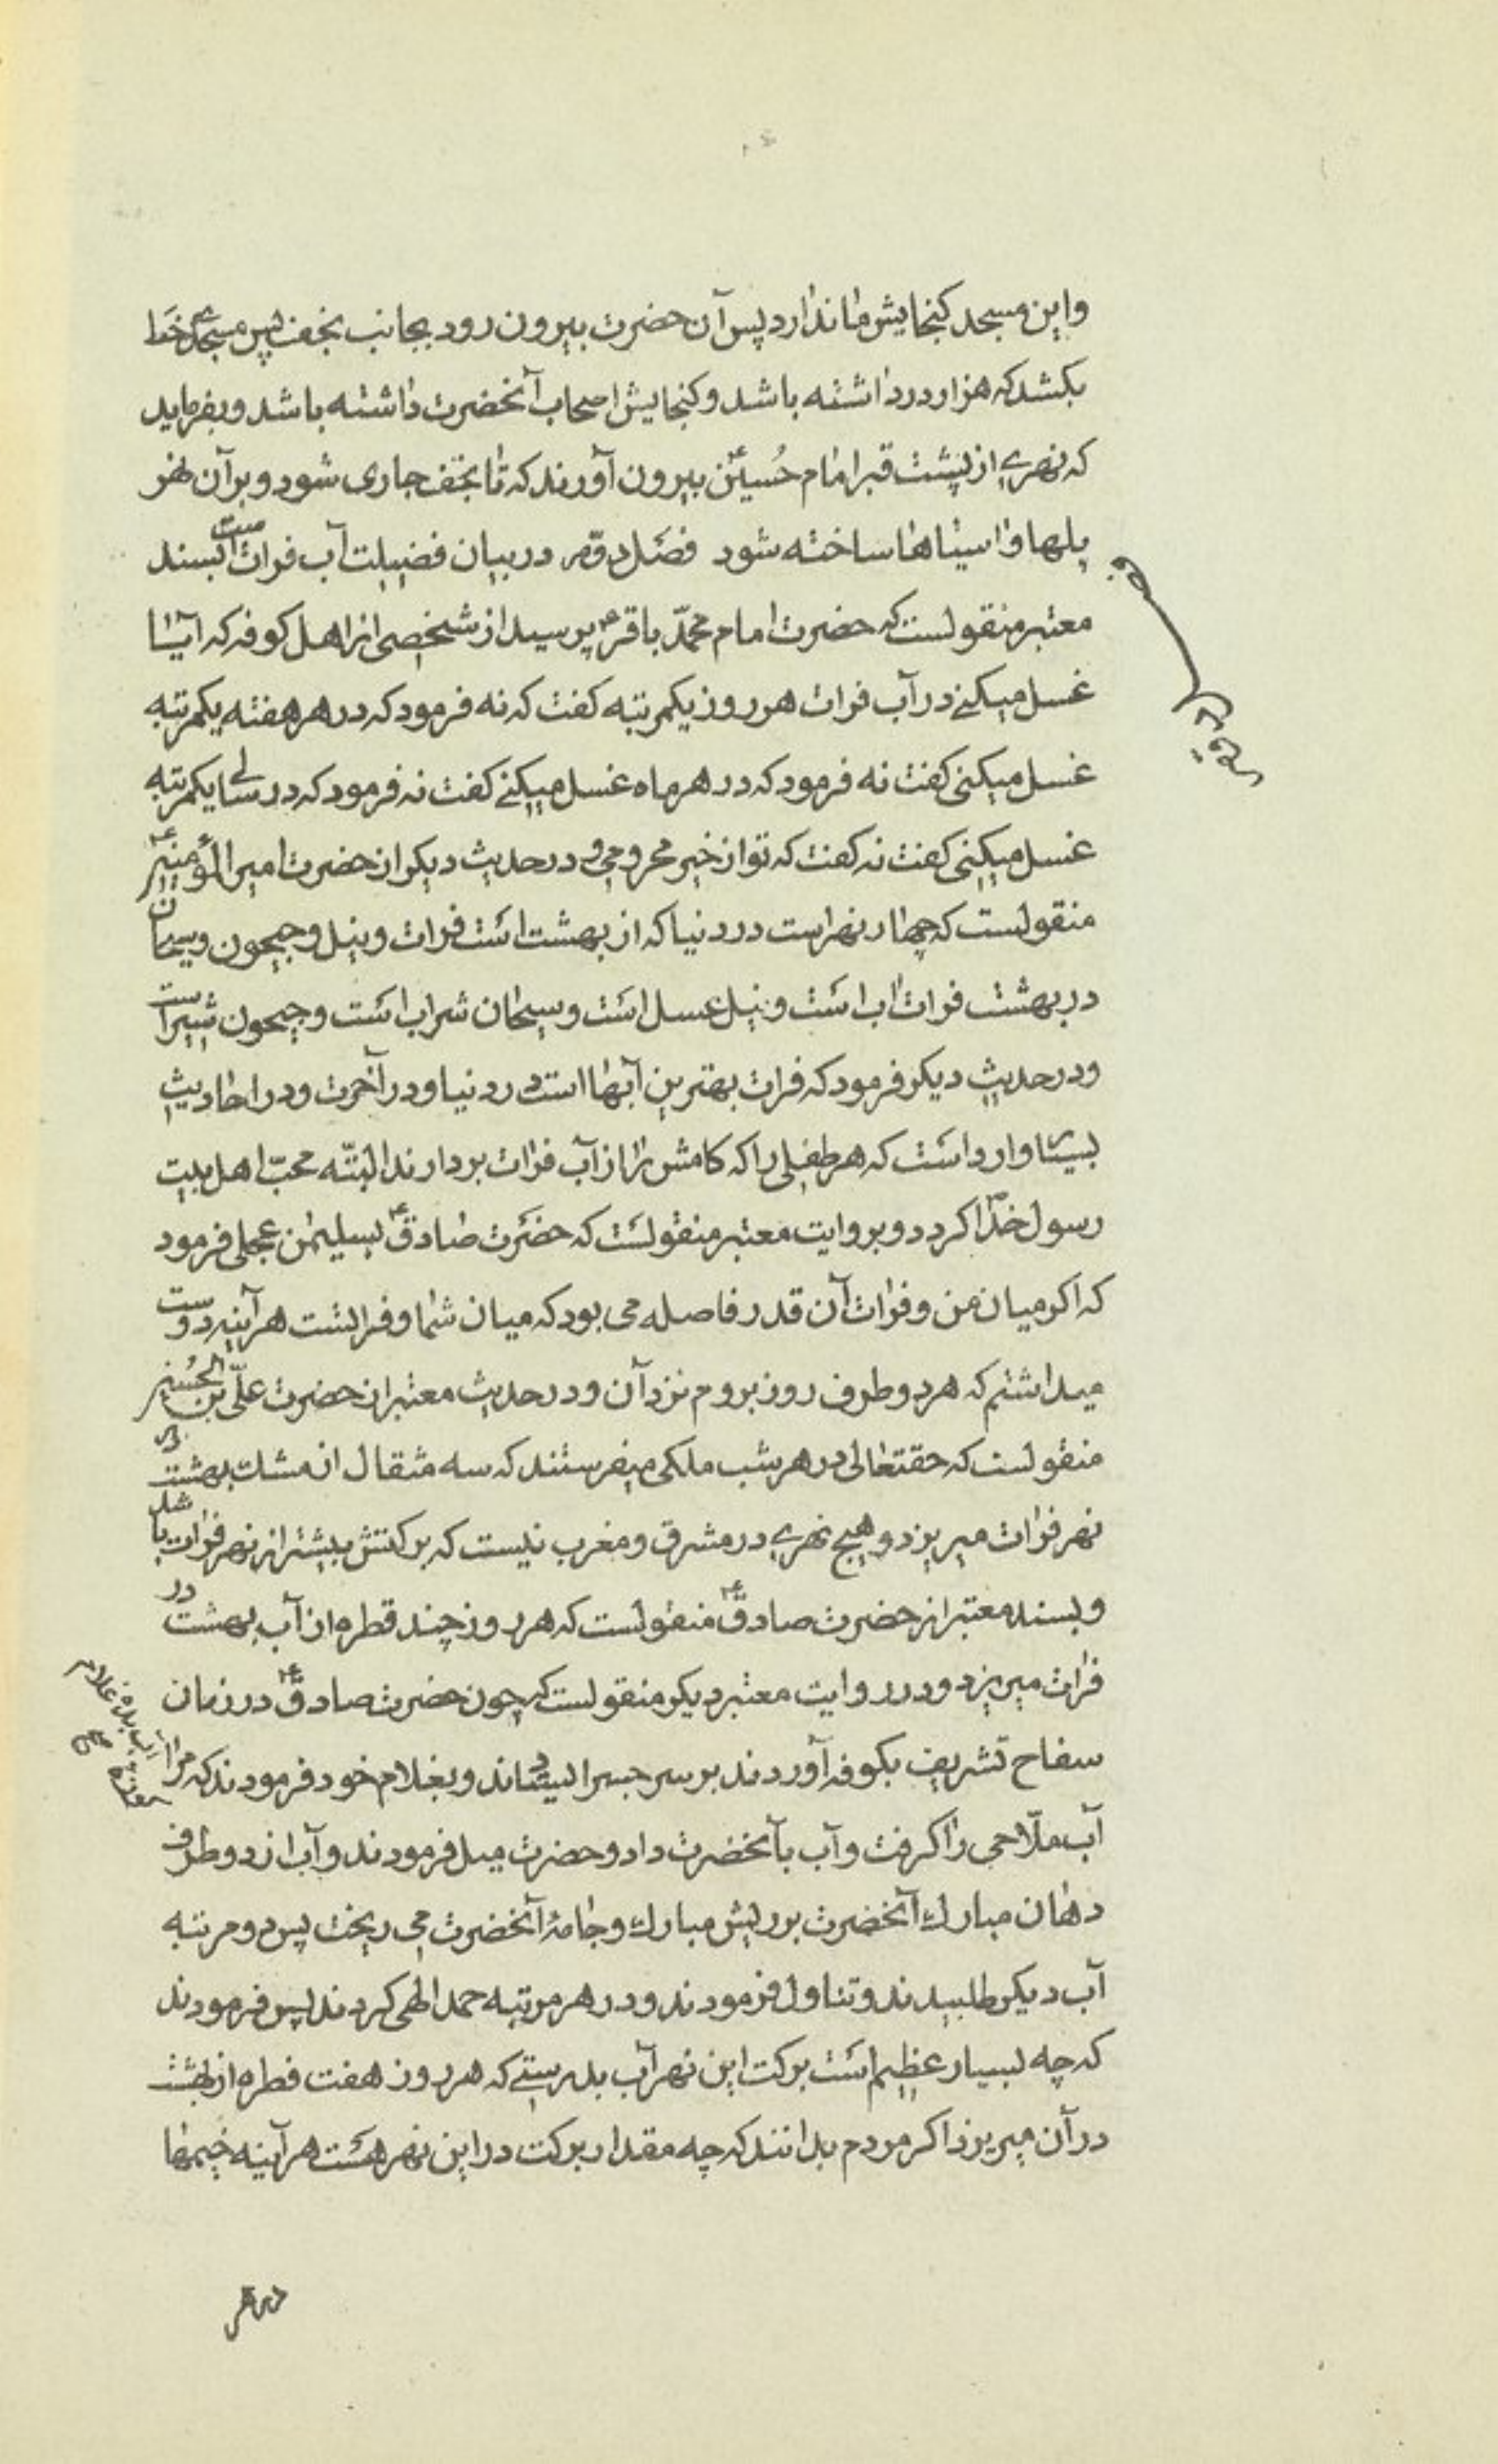 واین مسجد کنجایش ما ندارد پس آن حضرت بیرون رود بجانب نجف پس مسجدی خط
بکشد که هزار در داشته باشد و کنجایش اصحاب آنحضرت داشته باشد و بفرماید
که نهرے از پشت قبر امام حُسینؑ بیرون آورند که تا نجف جاری شود و بر آن نهر
پلها و اسیاها ساخته شود فصَل دوّم در بیان فضیلت آب فرات است بسند
معتبر منقولست که حضرت امام محمّد باقرؑ پرسید از شخصی از اهل کوفه که آیا
غسل میکنے در آب فرات هر روز یکمرتبه کفت که نه فرمود که در هر هفته یکمرتبه
غسل میکنی کفت نه فرمود که در هر ماه غسل میکنے کفت نه فرمود که در سالے یکمرتبه
غسل میکنی کفت نه کفت که تو از خیر محرومی و در حدیث دیکر از حضرت امیر المؤمنینؑ
منقولست که چهار نهر است در دنیا که از بهشت است فرات و نیل و جیحون و سیحان
در بهشت فرات اب است و نیل عسل است و سیحان شراب است و جیحون شیر است
و در حدیث دیکر فرمود که فرات بهترین آبها است در دنیا و در آخرت و در احادیث
بسیار وارد است که هر طفلی را که کامش را از آب فرات بردارند البتّه محبّ اهل بیت
رسول خدا کردد و بروایت معتبر منقولست که حضرت صادقؑ بسلیمن عجلی فرمود
که اکر میان من و فرات آن قدر فاصله می بود که میان شما و فراتست هر آینه دوست
میداشتم که هر دو طرف روز بروم نزد آن و در حدیث معتبر از حضرت علّی بن الحُسین
منقولست که حقتعالی در هر شب ملکی میفرستند که سه مثقال از مشک بهشت در
نهر فرات میریزد و هیچ نهرے در مشرق و مغرب نیست که برکتش بیشتر از نهر فرات باشد
و بسند معتبر از حضرت صادقؑ منقولست که هر روز چند قطره از آب بهشت در
فرات میریزد و در روایت معتبر دیکر منقولست که چون حضرت صادقؑ در زمان
سفاح تشریف بکوفه آوردند بر سر جسر ایستادند و بغلام خود فرمودند که مرا
آب بده غلام
آب ملّاحی را کرفت و آب بآنحضرت داد و حضرت میل فرمودند و آب از دو طرف
دهان مبارك آنحضرت بر ریش مبارك و جامهٔ آنحضرت می ریخت پس دو مرتبه
آب دیکر طلبیدند و تناول فرمودند و در هر مرتبه حمد الهی کردند پس فرمودند
که چه بسیار عظیم است برکت این نهر آب بدرستے که هر روز هفت قطره از بهشت
در آن میریزد اکر مردم بدانند که چه مقدار برکت در این نهر هست هر آینه خیمها